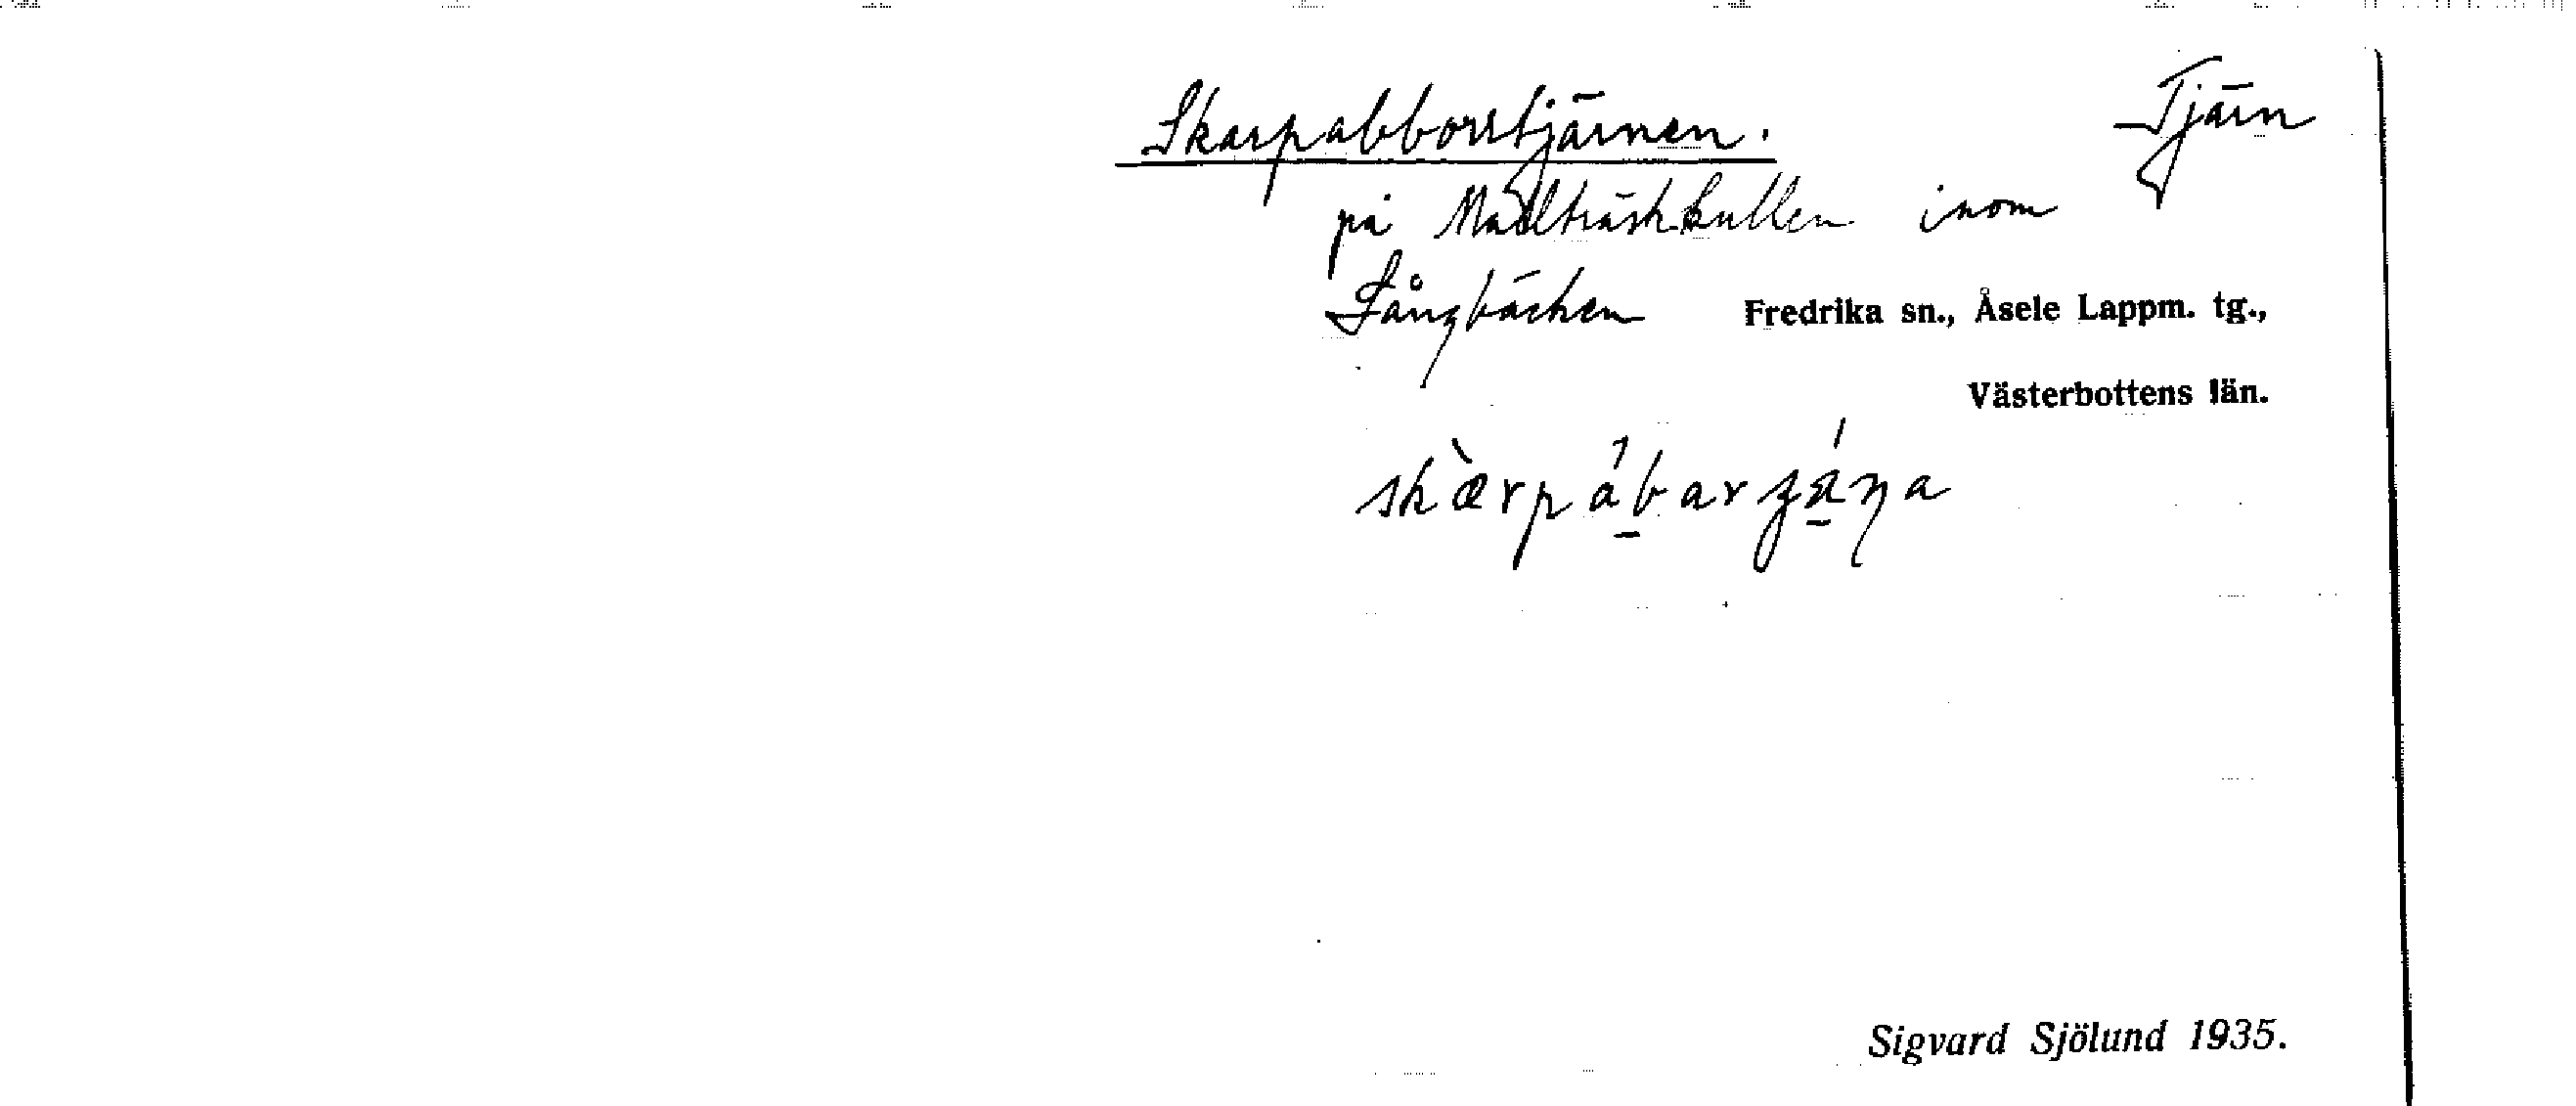 Skarpabborrtjärnen. Tjärn
på Malträskkullen inom
Långbäcken Fredrika sn., Åsele Lappm. tg.,
Västerbottens län.
Sigvard Sjölund 1935.